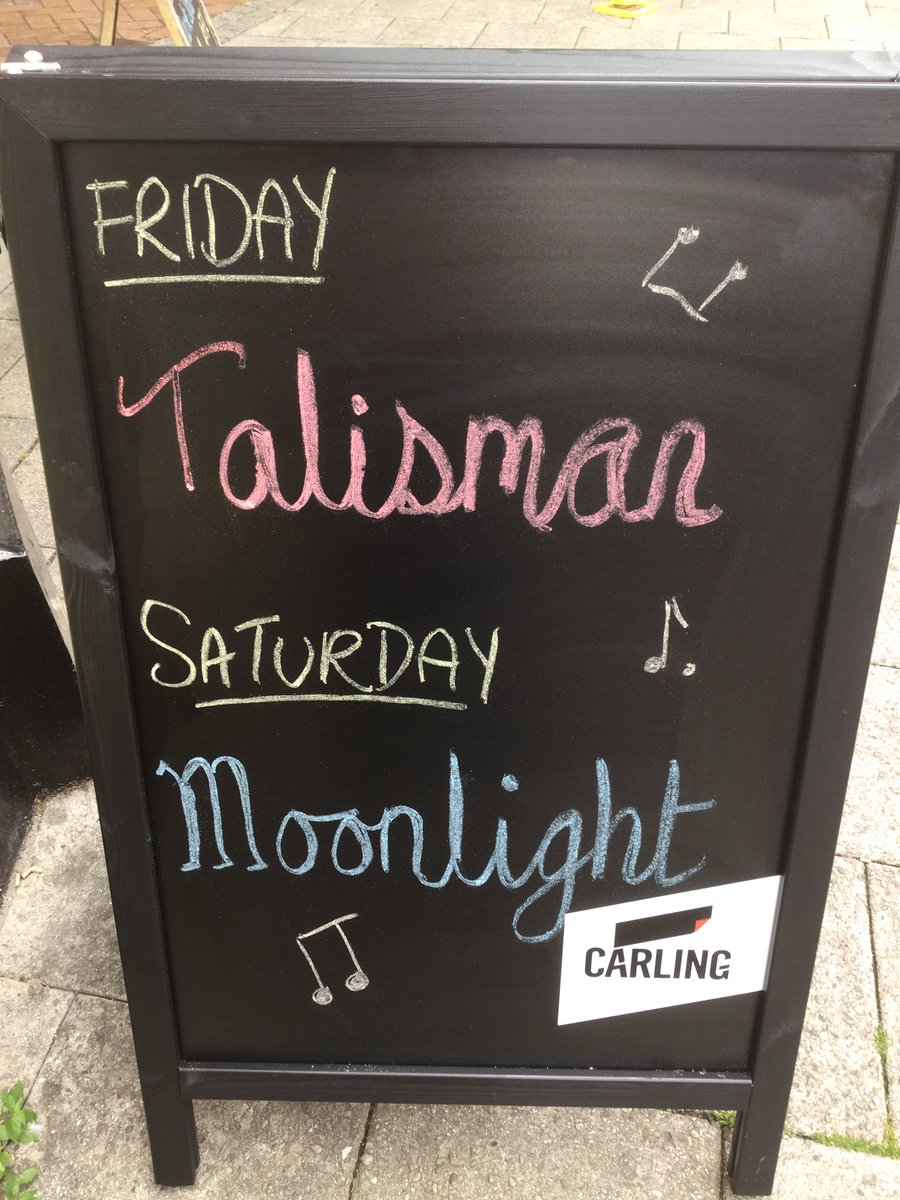 FRIDAY
Talisman
SATURDAY
Moonlight
CARLING